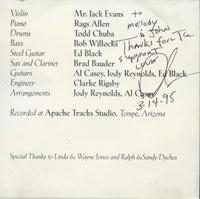 Violin Mr. Jack Evans
Piano Rags Allen
Drums Todd Chuba
Bass Bob Willocks
Steel Guitar Ed Black
Sax and Clarinet Brad Bauder
Guitars Al Casey, Jody Reynolds, Ed Black
Engineer Clarke Rigsby
Arrangements Jody Reynolds, Al Casey
to
melody
& John
Thanks for the
support
Love
3-14-95
Recorded at Apache Tracks Studio, Tempe, Arizona
Special Thanks to Linda & Wayne Jones and Ralph & Sandy Dyches